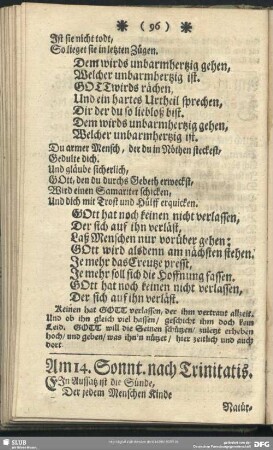 * ( 96 ) *
Ist sie nicht todt,
So lieget sie in letzten Zügen.
Dem wirds unbarmhertzig gehen,
Welcher unbarmhertzig ist.
GOTT wirds rächen,
Und ein hartes Urtheil sprechen,
Dir der du so liebloß bist.
Dem wirds unbarmhertzig gehen,
Welcher unbarmhertzig ist.
Du armer Mensch, der du in Nöthen steckest,
Gedulte dich.
Und gläube sicherlich,
GOtt, den du durchs Gebeth erweckst,
Wird einen Samariter schicken,
Und dich mit Trost und Hülff erquicken.
GOtt hat noch keinen nicht verlassen,
Der sich auf ihn verläst,
Laß Menschen nur vorüber gehen;
GOtt wird alsdenn am nächsten stehen.
Je mehr das Creutze presst,
Je mehr soll sich die Hoffnung fassen.
GOtt hat noch keinen nicht verlassen,
Der sich auf ihn verläst.
Keinen hat GOTT verlassen, der ihm vertraut allzeit.
Und ob ihn gleich viel hassen, geschicht ihm doch kein
Leid. GOTT will die Seinen schützen, zuletzt erheben
hoch, und geben, was ihn'n nützet, hier zeitlich und auch
dort
Am 14. Sonnt. nach Trinitatis.
Ein Aussatz ist die Sünde,
Der jeden Menschen Kinde
Natür-
SLUB